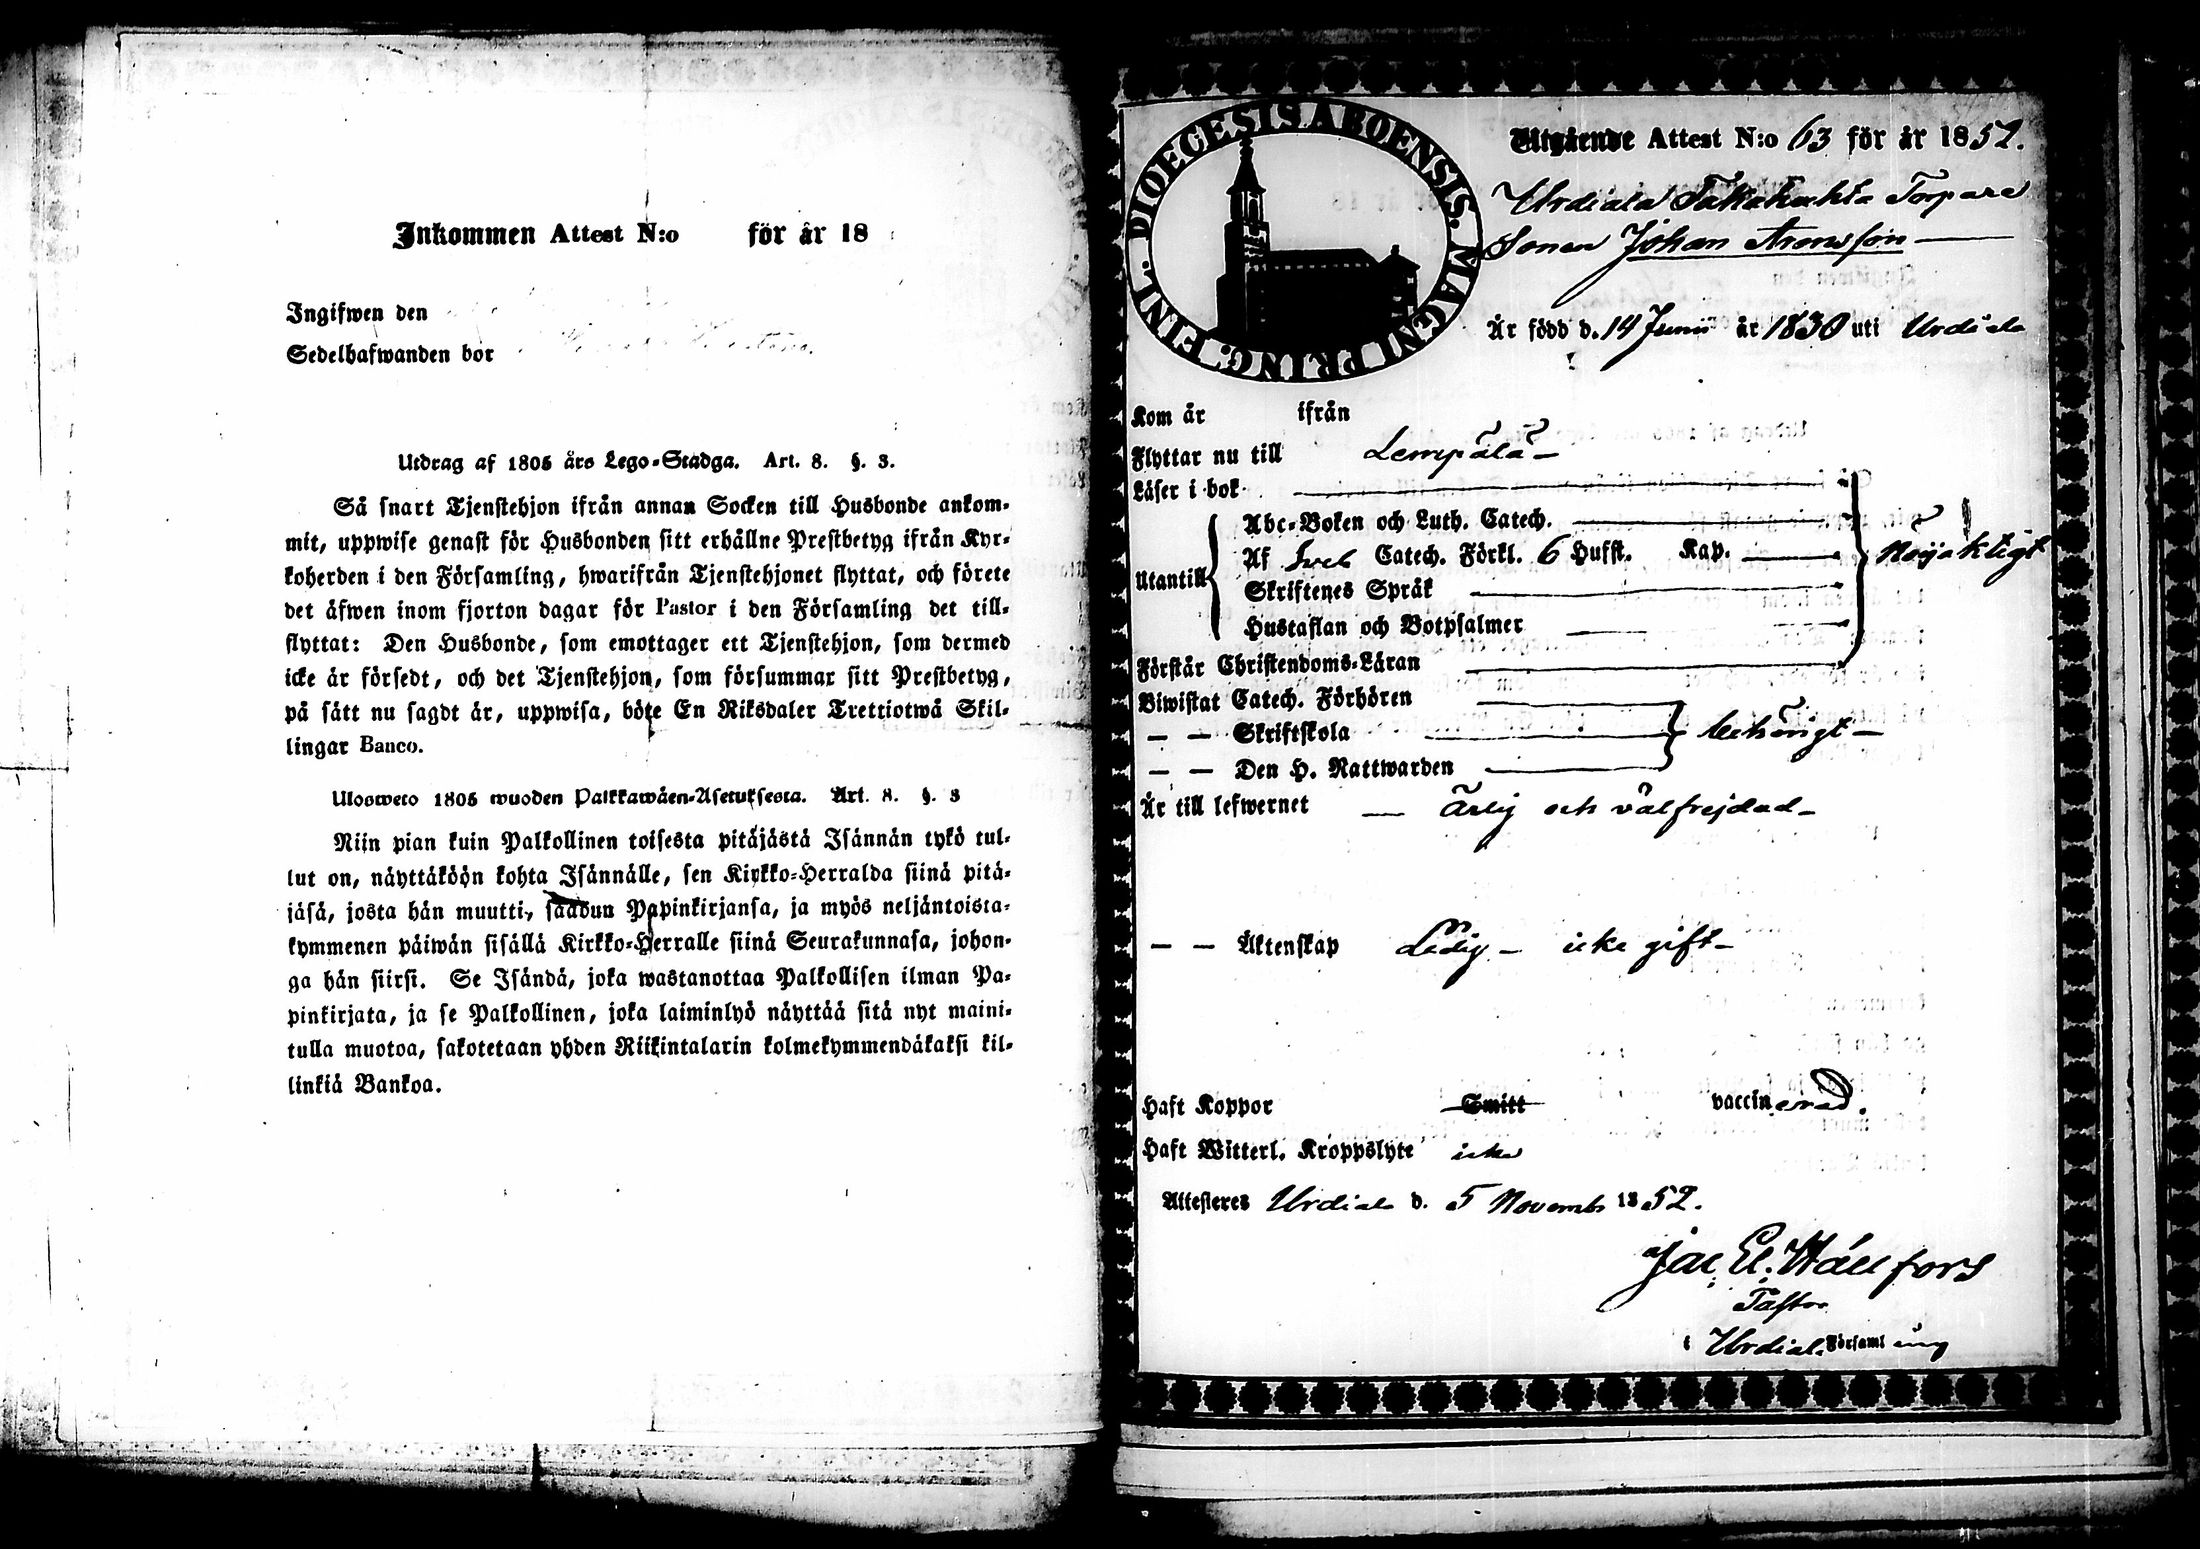 Inkommen Attest N:o för år 18
Ingifwen den
Sedelhafwanden bor
Utdrag af 1805 års Lego-Stadga. Art. 8. §. 3.
Så snart Tjenstehjon ifrån annan Socken till Husbonde ankom-
mit, uppwise genast för Husbonden sitt erhållne Prestbetyg ifrån Kyr-
koherden i den Församling, hwarifrån Tjenstehjonet flyttat, och förete
det äfwen inom fjorton dagar för Pastor i den Församling det till-
flyttat: Den Husbonde, som emottager ett Tjenstehjon, som dermed
icke är försedt, och det Tjenstehjon, som försummar sitt Prestbetyg,
på sätt nu sagdt är, uppwisa, böte En Riksdaler Trettiotwå Skil-
lingar Banco.
Ulosweto 1805 wuoden Palkkawäen-Asetuksesta. Art. 8. §. 3
Niin pian kuin Palkollinen toisesta pitäjästä Isännän tykö tul-
lut on, näyttäköön kohta Isännälle, sen Kirkko-Herralda siinä pitä-
jäsä, josta hän muutti, saadun Papinkirjansa, ja myös neljäntoista-
kymmenen päiwän sisällä Kirkko-Herralle siinä Seurakunnasa, johon-
ga hän siirsi. Se Isändä, joka wastanottaa Palkollisen ilman Pa-
pinkirjata, ja se Palkollinen, joka laiminlyö näyttää sitä nyt maini-
tulla muotoa, sakotetaan yhden Riikintalarin kolmekymmendäkaksi kil-
linkiä Bankoa.
DIOECESIS ABOENSIS. MAGNI PRINC. FINL.
Utgående Attest N:o 63 för år 1852.
Urdiala Torpare
Sonen Johan Aronsson
Är född d. 14 Junii år 1830 uti Urdiala
Kom år ifrån
Flyttar nu till Lempälä
Läser i bok
Abc-Boken och Luth. Catech.
Af Sveb Catech. Förkl. 6 Hufst. Kap.
Utantill
Nöjaktigt
Skriftenes Språk
Hustaflan och Botpsalmer
Förstår Christendoms-Läran
Biwistat Catech. Förhören
— — Skriftskola behörigt
— — Den H. Nattwarden
Är till lefwernet — Ärlig och välfrejdad
— — Äktenskap Ledig — icke gift
Haft Koppor Smitt vaccinerad.
Haft Witterl. Kroppslyte icke
Attesteres Urdiala d. 5 Novemb 1852.
Jac. El. Wallfors
Pastor
i Urdiala Församling